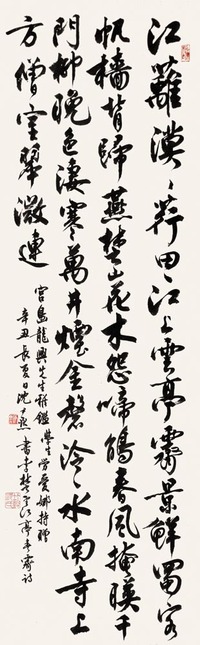 江蘺漠〻荇田〻江上雲亭霽景鮮蜀客
帆檣背歸燕楚山花木怨啼鵑春風掩暎千
門柳晚色淒寒萬井煙金磬泠〻水南寺上
方僧室翠微連
宮島龍興先生雅鑑 學生愛娜持贈
辛丑長夏日沈尹默書李羣玉江亭春霽詩